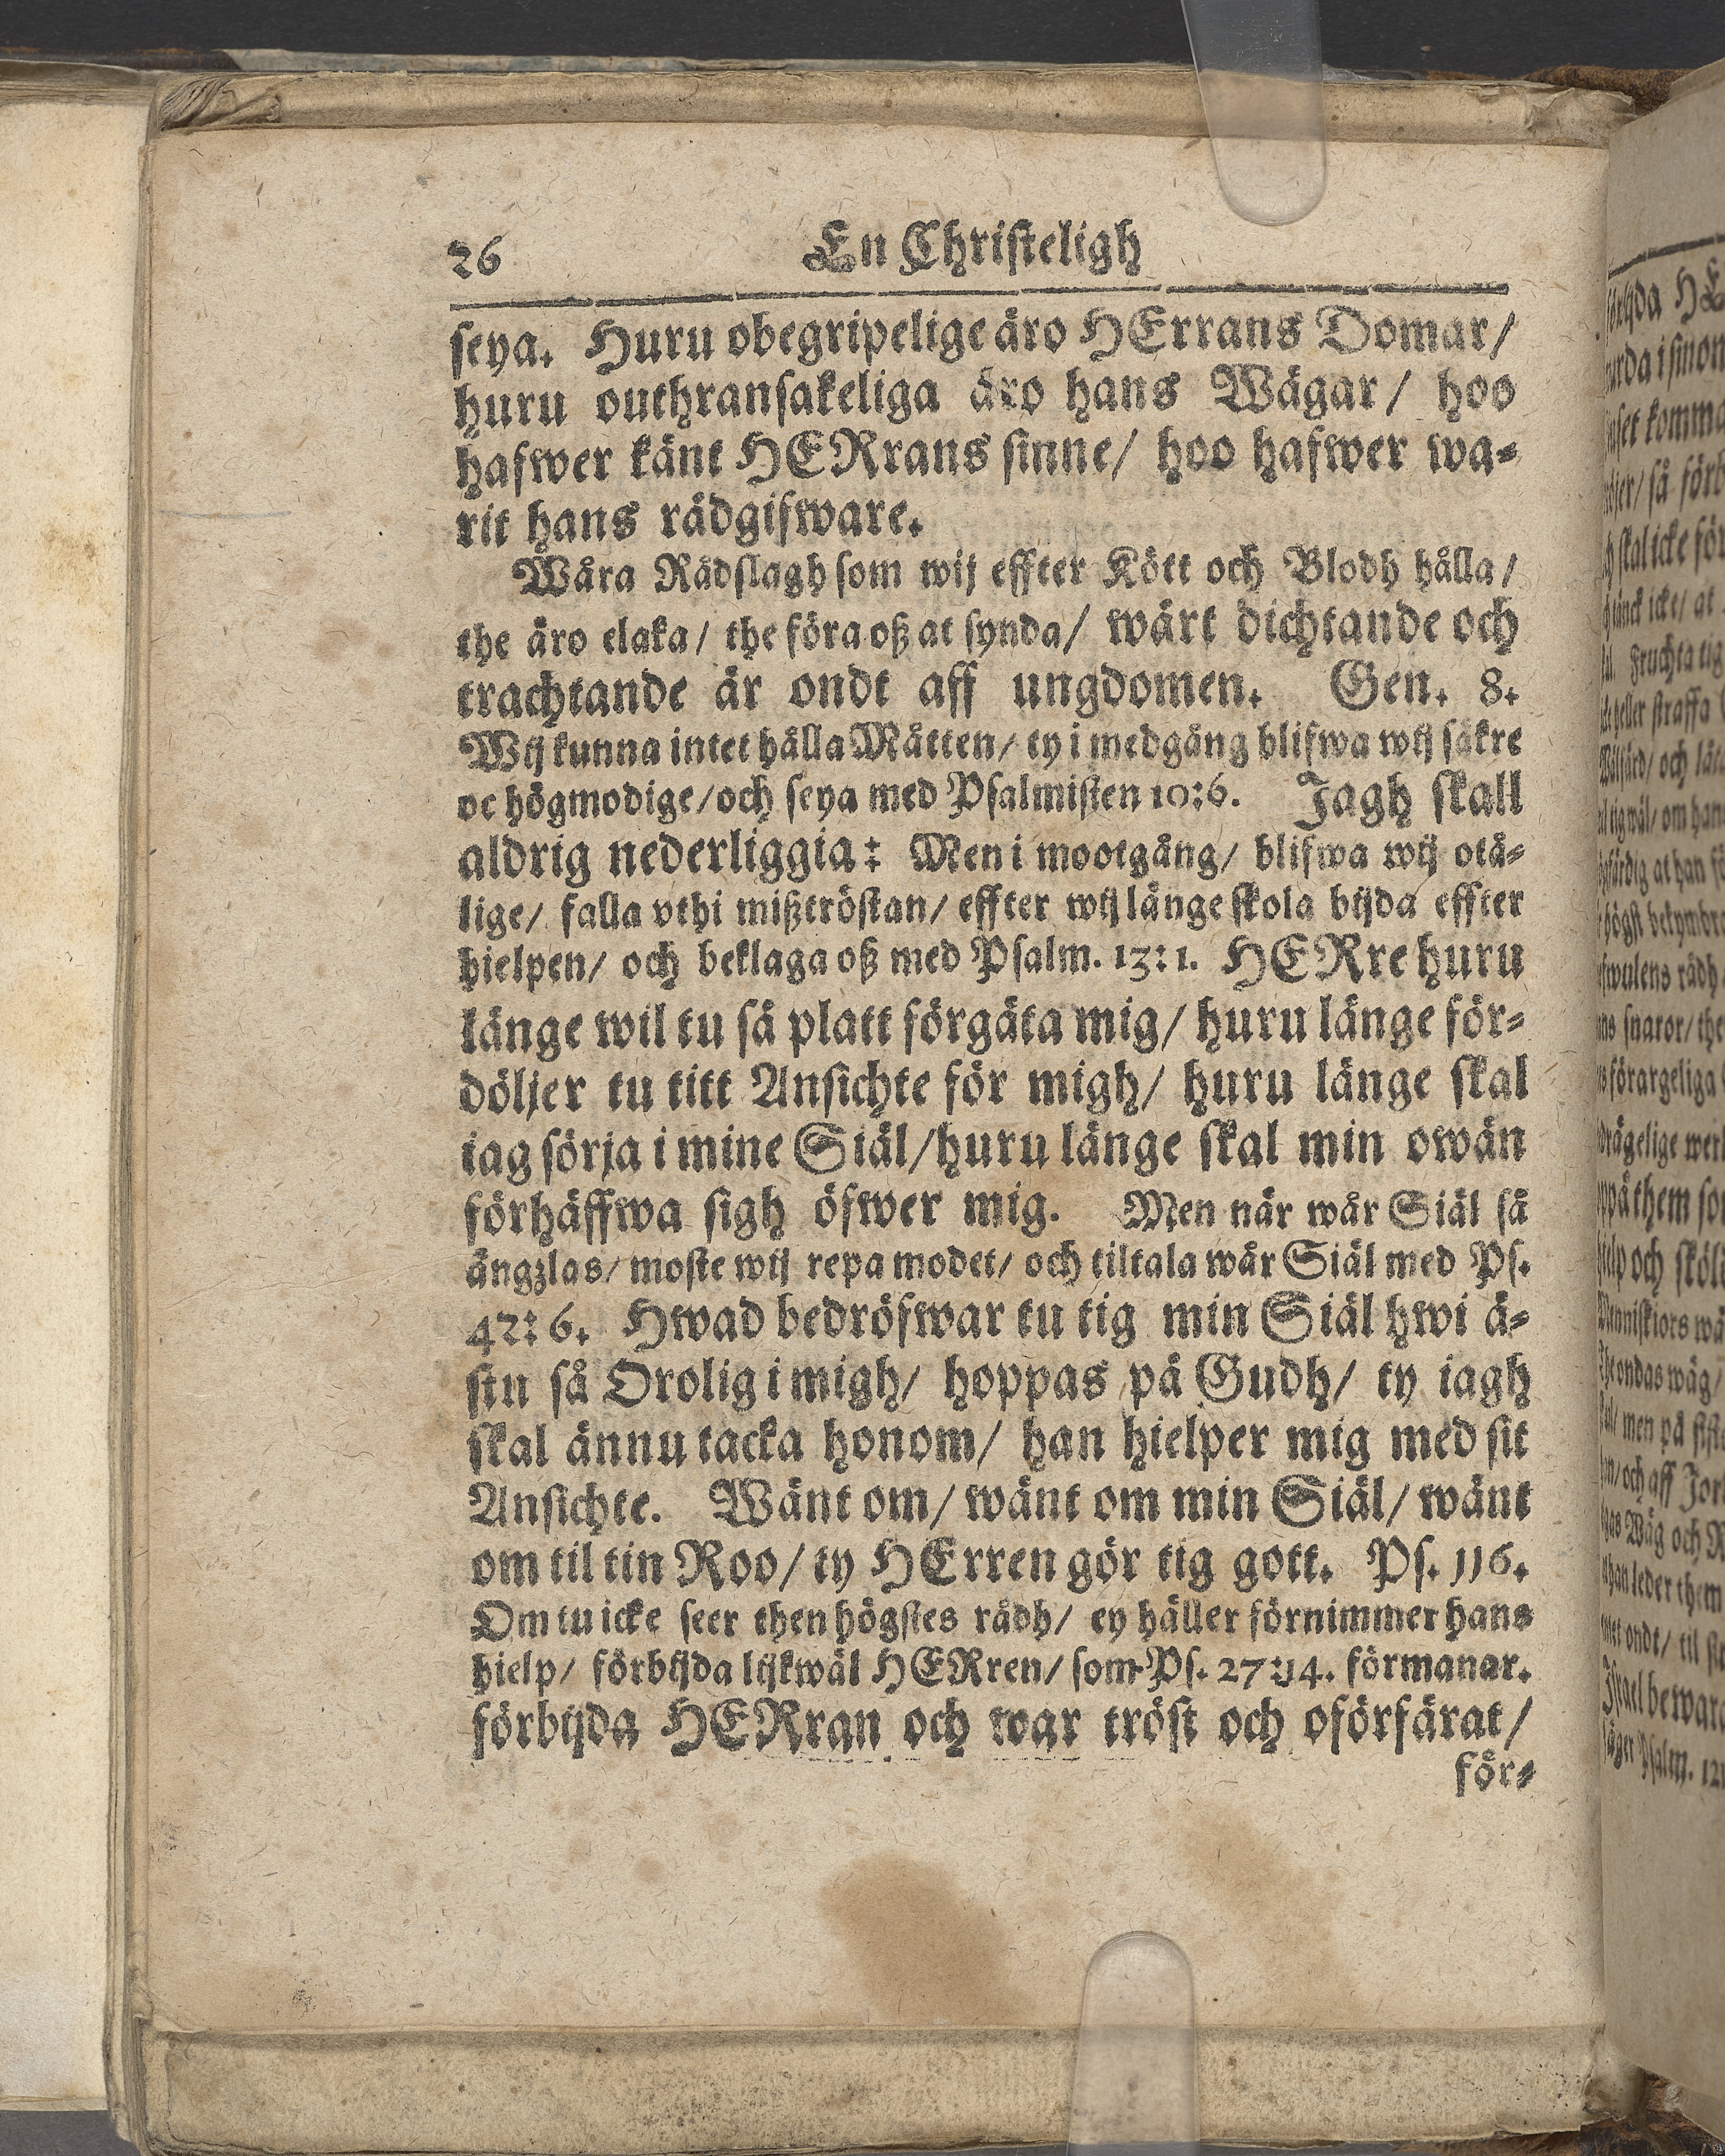 26 En Christeligh
seya. Huru obegripelige äro HErrans Domar/
huru outhransakeliga äro hans Wägar/ hoo
hafwer känt HERrans sinne/ hoo hafwer wa⸗
rit hans rådgifware.
Wåra Rådslagh som wij effter Kött och Blodh hålla/
the äro elaka/ the föra oß at synda/ wårt dichtande och
trachtande är ondt aff ungdomen. Gen. 8.
Wij kunna intet hålla Måtten/ ty i medgång blifwa wij säkre
oc högmodige/ och seya med Psalmisten 10:6. Jagh skall
aldrig nederliggia: Men i mootgång/ blifwa wij otå⸗
lige/ falla vthi mißtröstan/ effter wij länge skola bijda effter
hielpen/ och beklaga oß med Psalm. 13:1. HERre huru
länge wil tu så platt förgäta mig/ huru länge för⸗
döljer tu titt Ansichte för migh/ huru länge skal
iag sörja i mine Siäl/ huru länge skal min owän
förhäffwa sigh öfwer mig. Men när wår Siäl så
ängzlas/ moste wij repa modet/ och tiltala wår Siäl med Ps.
42:6. Hwad bedröfwar tu tig min Siäl hwi ä⸗
stu så Orolig i migh/ hoppas på Gudh/ ty iagh
skal ännu tacka honom/ han hielper mig med sit
Ansichte. Wänt om/ wänt om min Siäl/ wänt
om til tin Roo/ ty HErren gör tig gott. Ps. 116.
Om tu icke seer then högstes rådh/ ey häller förnimmer hans
hielp/ förbijda lijkwäl HERren/ som Ps. 27:14. förmanar.
förbijda HERran och war tröst och oförfärat/
för⸗